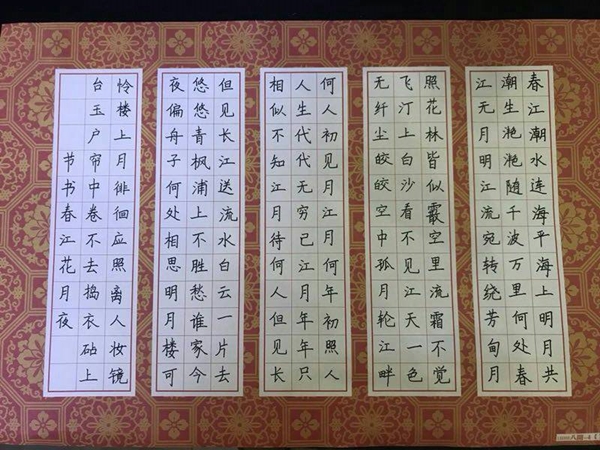 春江潮水连海平海上明月共
潮生滟滟随千波万里何处春
江无月明江流宛转绕芳甸月
照花林皆似霰空里流霜不觉
飞汀上白沙看不见江天一色
无纤尘皎皎空中孤月轮江畔
何人初见月江月何年初照人
人生代代无穷己江月年年只
相似不知江月待何人但见长
但见长江送流水白云一片去
悠悠青枫浦上不胜愁谁家今
夜偏舟子何处相思明月楼可
怜楼上月徘徊应照离人妆镜
台玉户帘中卷不去捣衣砧上
节书春江花月夜